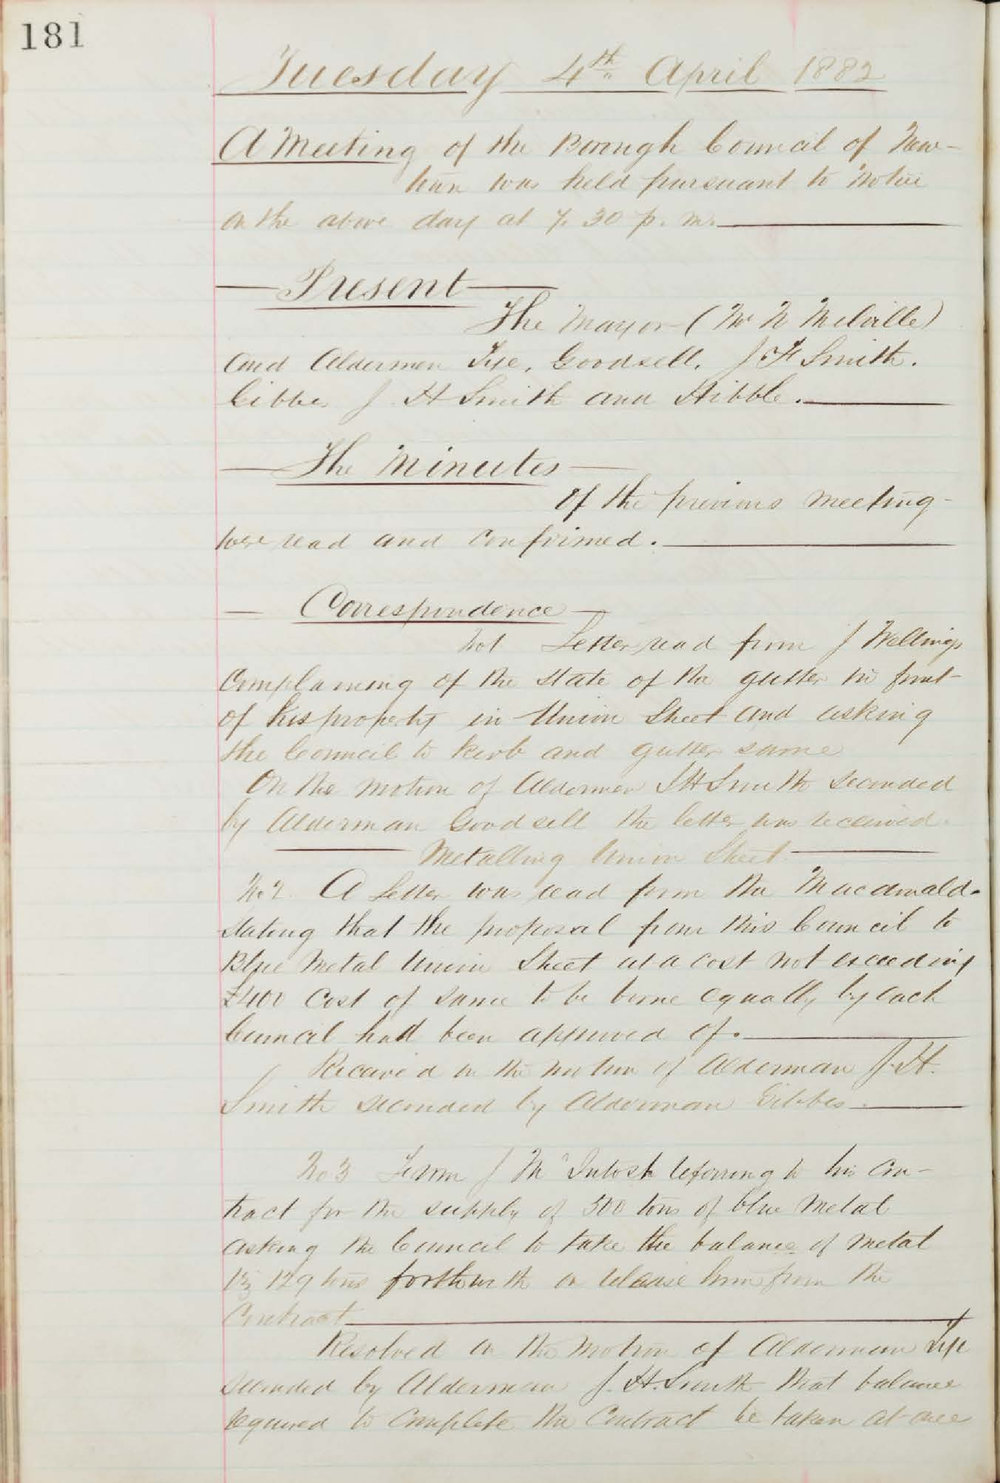 181
Tuesday 4th April 1882
A Meeting of the Borough Council of New-
town was held pursuant to Notice
on the above day at 7.30 p.m.
Present
The Mayor (Mr N Melville)
and Aldermen Fife, Goodsell, J F Smith.
Gibbes J H Smith and Hibble.
The Minutes
of the previous meeting
were read and confirmed.
Correspondence
No1 Letter read from J Wellings
Complaining of the state of the gutter in front
of his property in Union Street and asking
the Council to kerb and gutter same
On the motion of Alderman J H Smith seconded
by Alderman Goodsell the letter was received.
Metalling Union Street
No2. A Letter was read from the Macdonald-
stating that the proposal from this Council to
Blue Metal Union Street at a cost not exceeding
£400 cost of same to be borne equally by each
Council had been approved of.
Received on the motion of Alderman J. H.
Smith seconded by Alderman Gibbes.
No3 From J McIntosh referring to his Con-
tract for the supply of 300 tons of blue Metal
asking the Council to take the balance of metal
viz 129 tons forthwith or release him from the
Contract
Resolved on the motion of Alderman Fife
seconded by Alderman J. H. Smith that balance
required to complete the Contract be taken at once